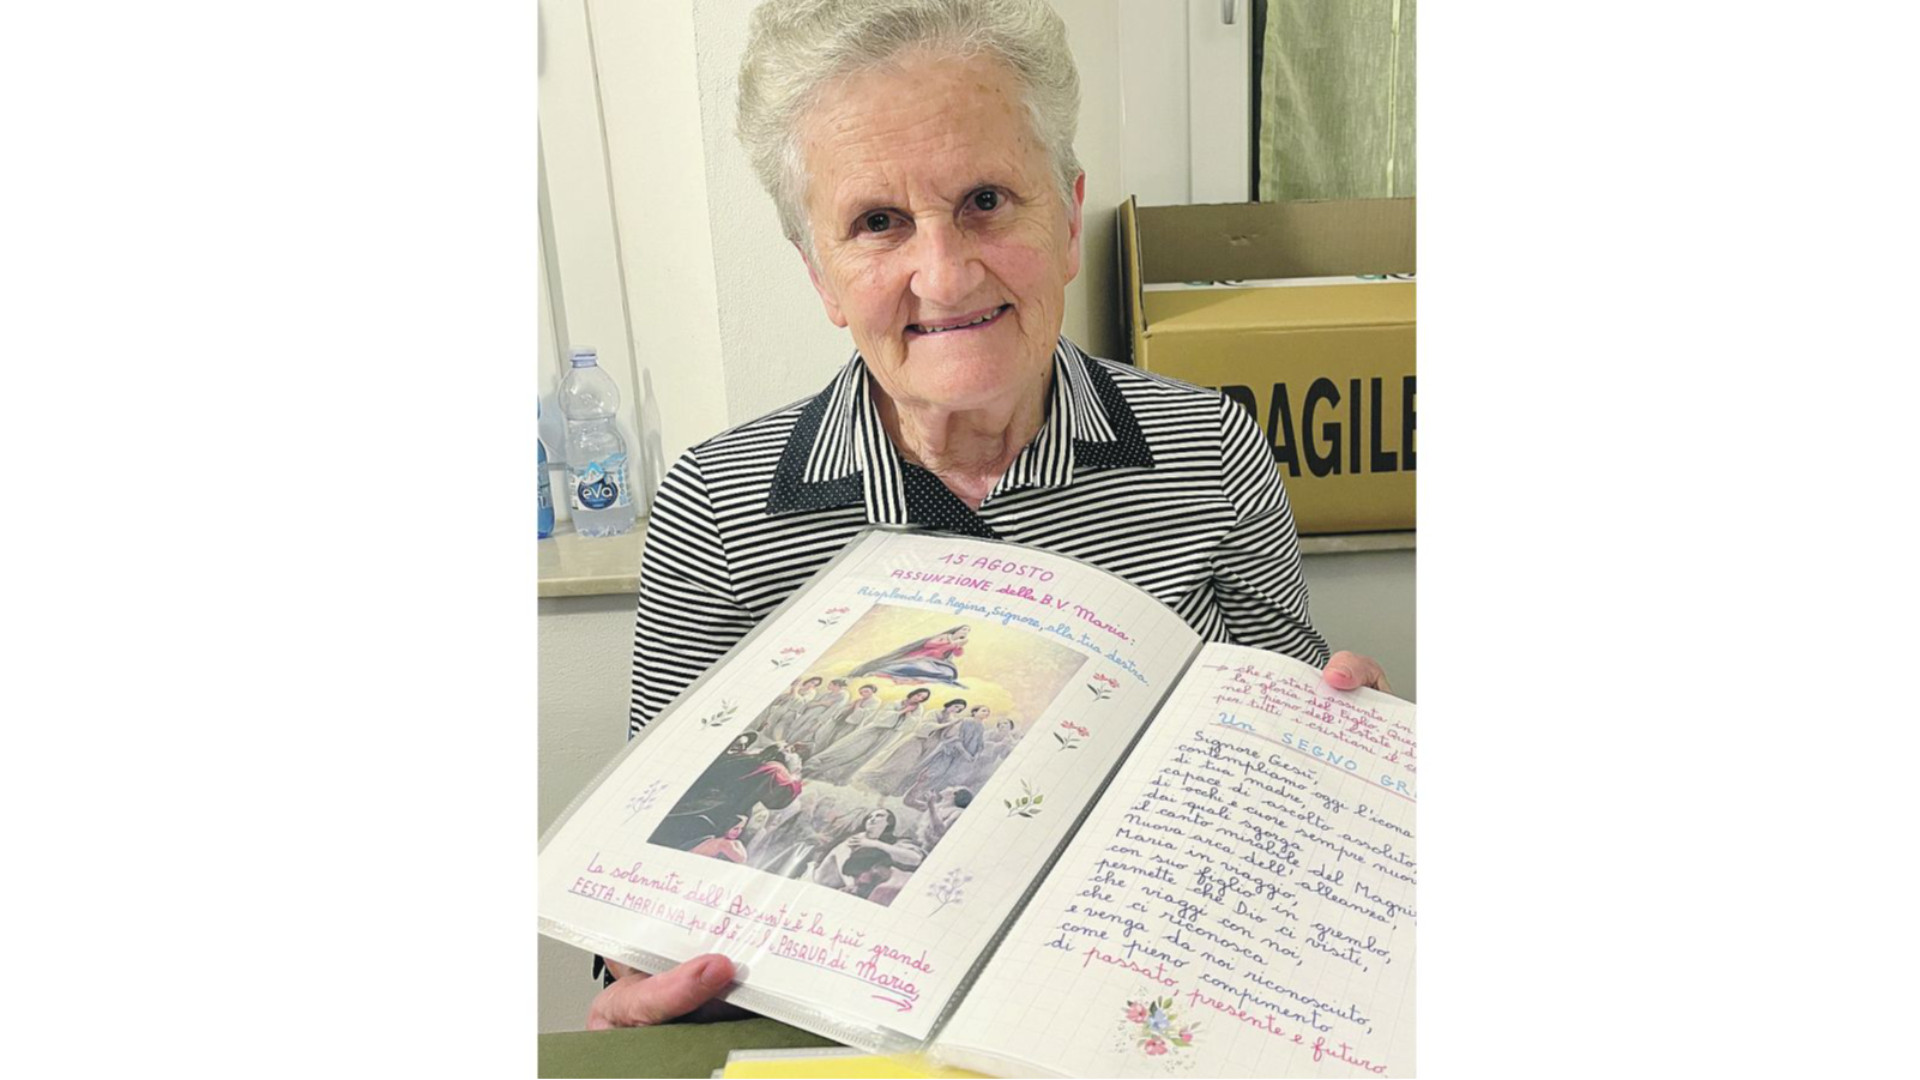 eva
FRAGILE
15 AGOSTO
ASSUNZIONE della B.V. Maria:
Risplende la Regina, Signore, alla tua destra.
La solennità dell'Assunta è la più grande
FESTA-MARIANA perché è la PASQUA di Maria,
→
→ che è stata assunta in
la gloria del Figlio.
nel pieno dell'Estate, d
per tutti i cristiani il se
Un SEGNO GR
Signore Gesù,
contempliamo oggi l'icona
di tua madre,
capace di ascolto assoluto,
di occhi e cuore sempre nuovi
dai quali sgorga
il canto mirabile del Magni
Nuova arca dell'alleanza,
Maria in viaggio,
con suo figlio in grembo,
permette che Dio ci visiti,
che viaggi con noi,
che ci riconosca
e venga da noi riconosciuto,
come pieno compimento
di passato, presente e futuro.